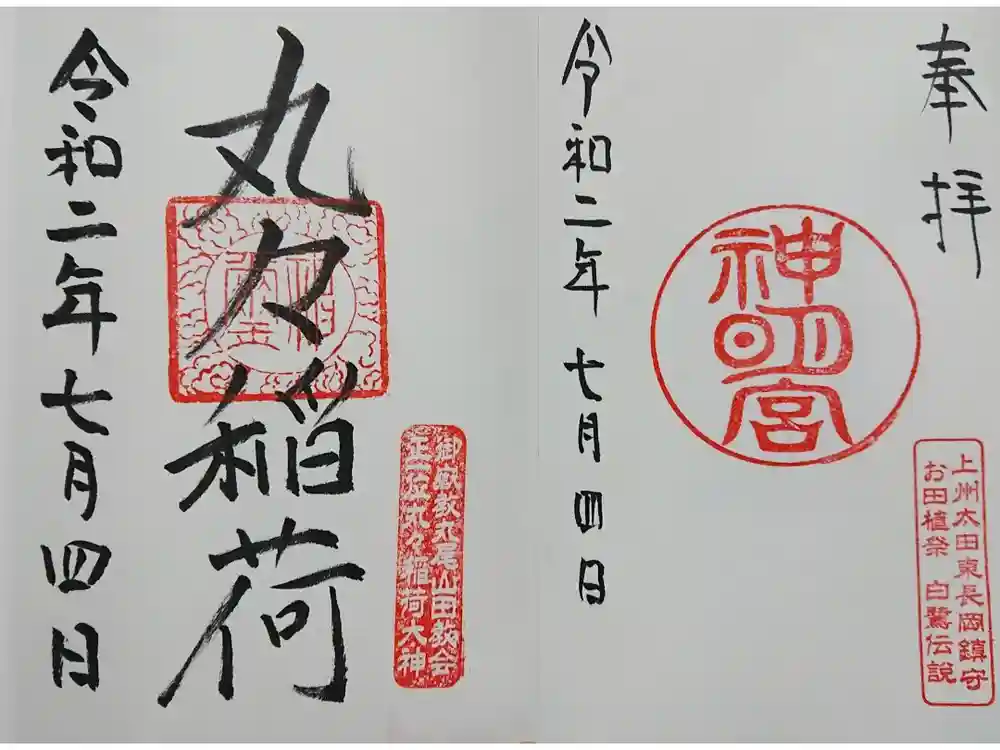 奉拝
神明宮
上州太田東長岡鎮守
お田植祭 白鷺伝説
令和二年 七月四日
丸々稲荷
御嶽教丸尾山田教会
正一位丸々稲荷大神
令和二年七月四日